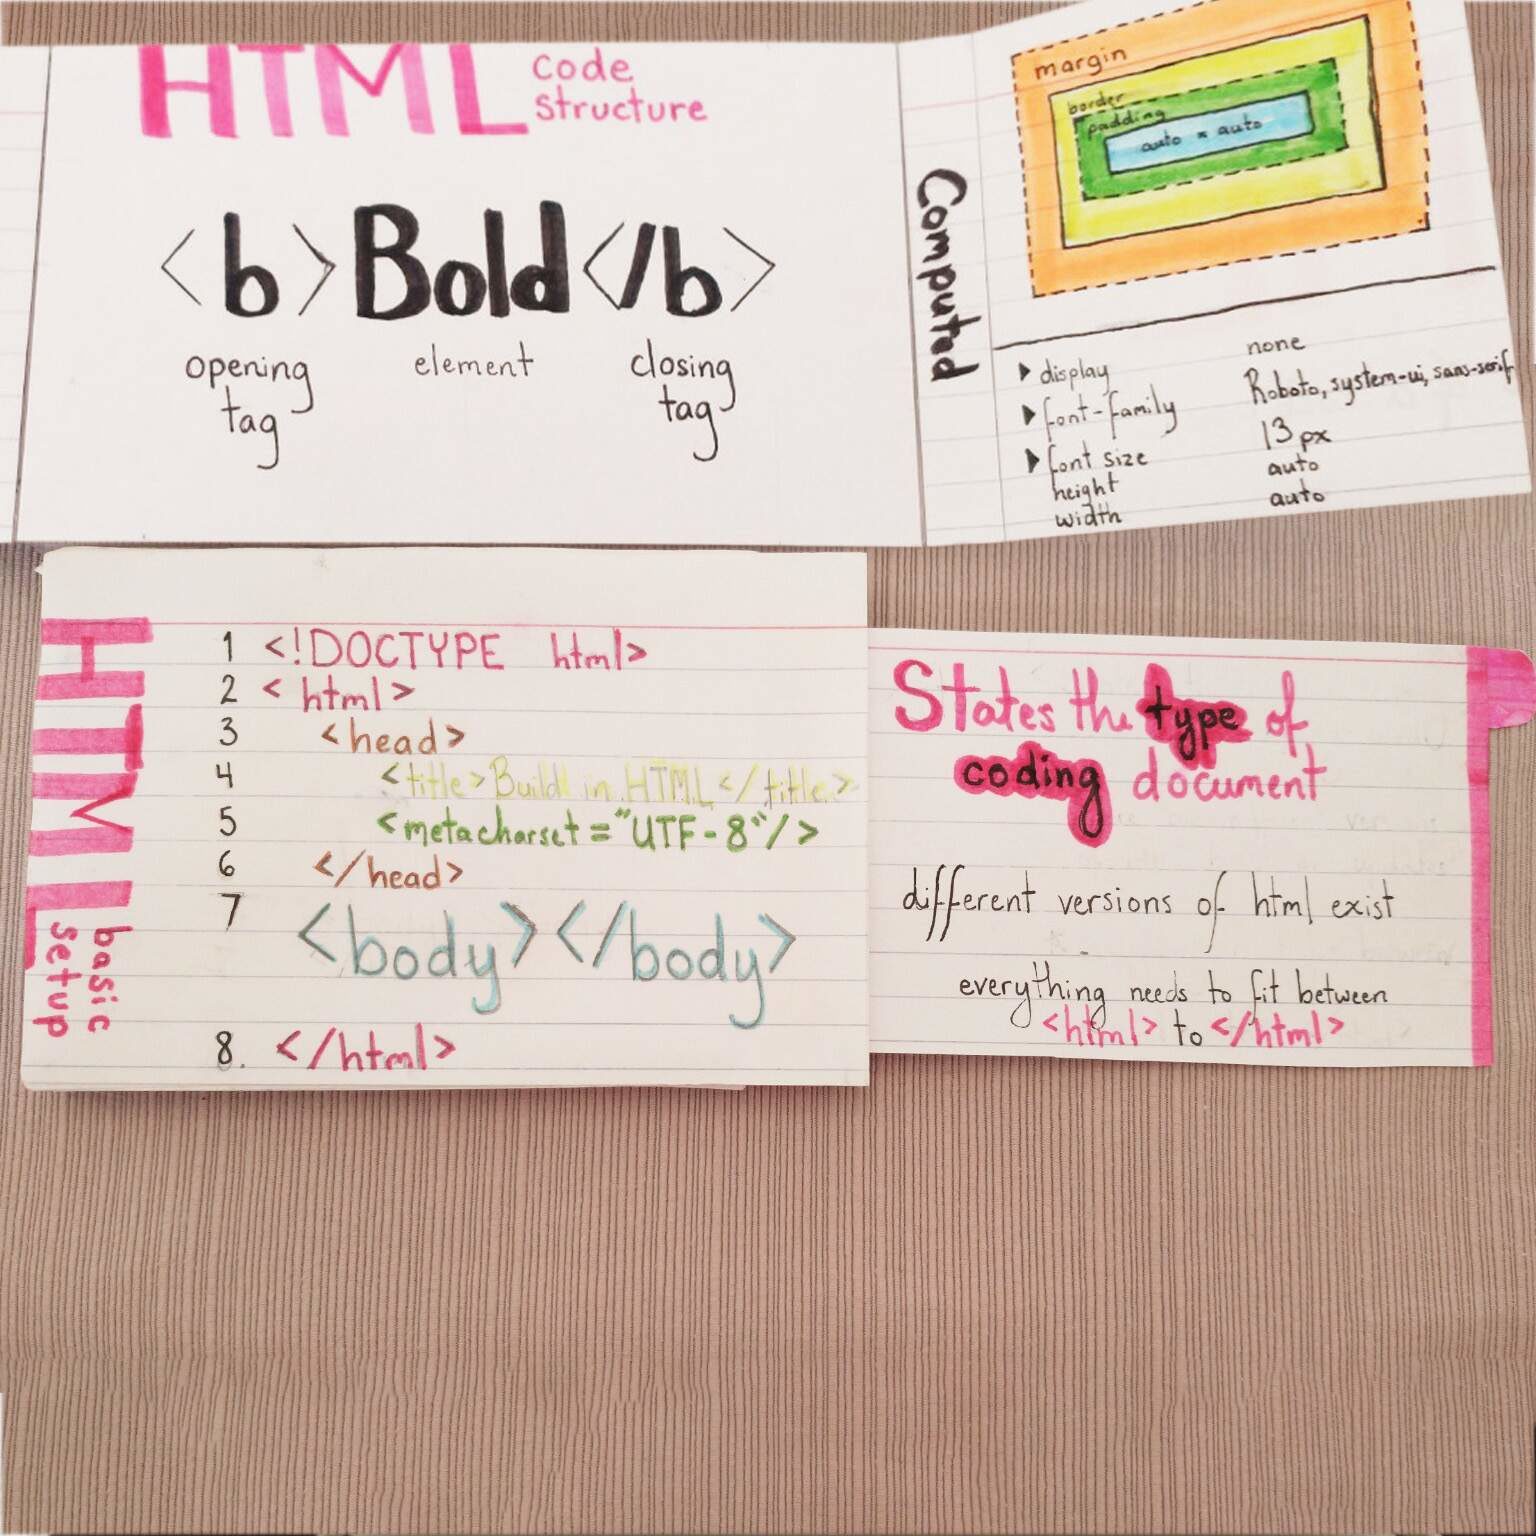 HTML
code
structure
<b>Bold</b>
opening
tag
element
closing
tag
Computed
margin
border
padding
auto × auto
display none
font-family Roboto, system-ui, sans-serif
font size 13px
height auto
width auto
HTML
basic
setup
1 <!DOCTYPE html>
2 <html>
3 <head>
4 <title>Build in HTML</title>
5 <metacharset="UTF-8"/>
6 </head>
7 <body></body>
8. </html>
States the type of
coding document
different versions of html exist
everything needs to fit between
<html> to </html>